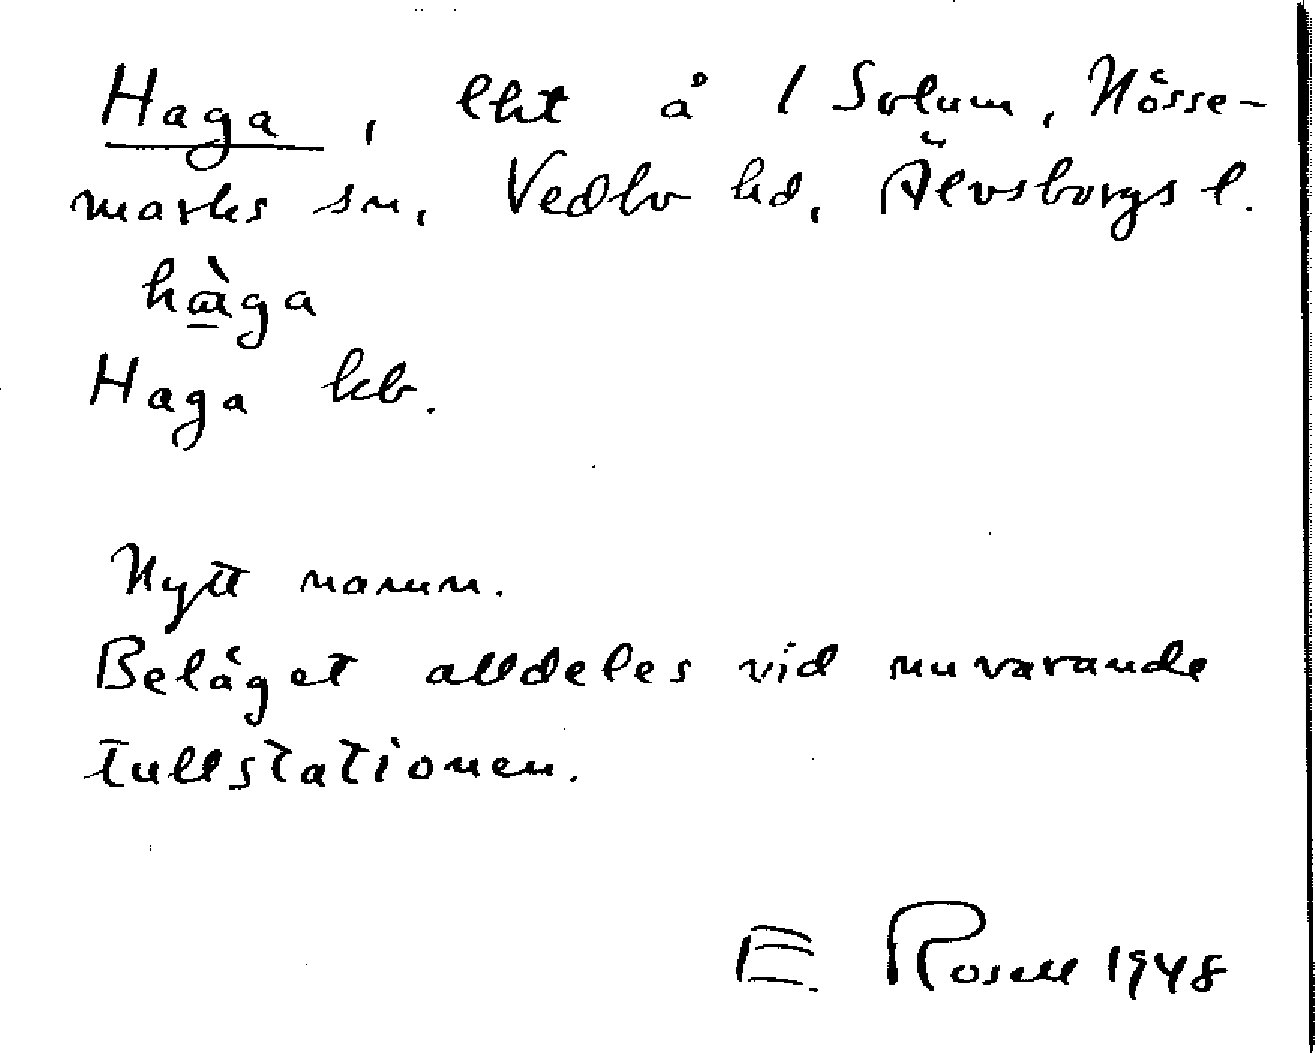 Haga, lht å 1 Solum, Nösse-
marks sn, Vedbo hd, Älvsborgs l.
hàga
Haga kb.
Nytt namn.
Beläget alldeles vid nuvarande
tullstationen.
E. Rosell 1948